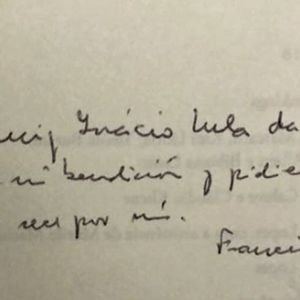 uiz Inácio Lula da
mi bendición y pidie
rece por mí.
Franci